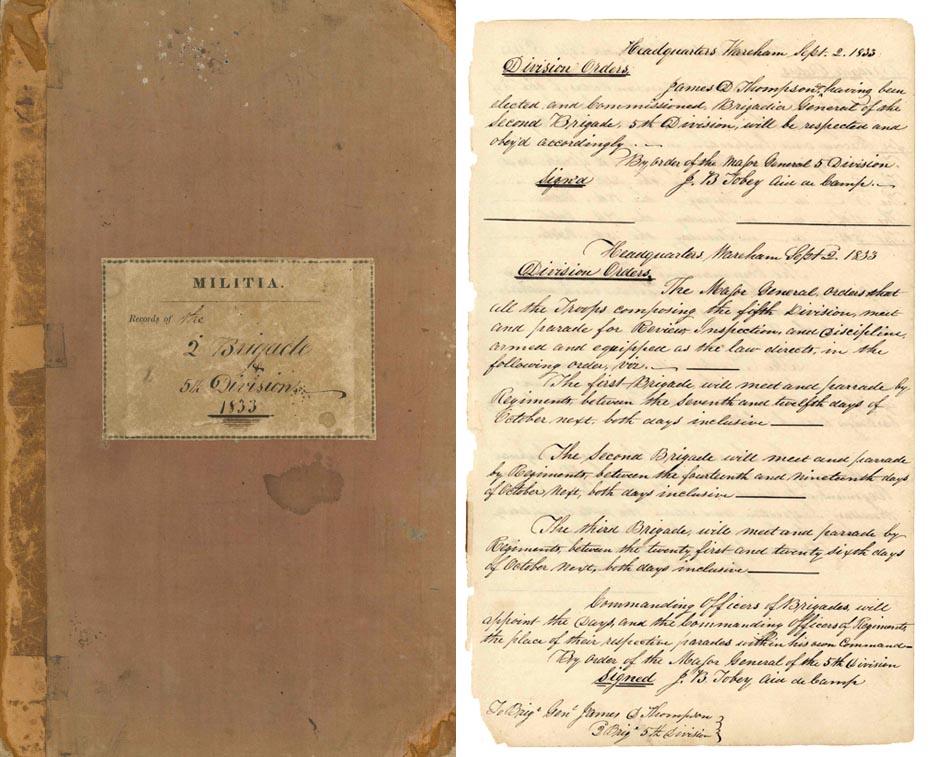 MILITIA.
Records of the
2 Brigade
5th Division
1833
Headquarters Wareham Sept. 2. 1833
Division Orders.
James D Thompson, having been
elected, and Commissioned, Brigadia General of the
Second Brigade, 5th Division, will be respected and
obey'd accordingly.
By order of the Major General 5 Division.
Sign'd J. B Tobey Aid de Camp.
Headquarters, Wareham Sept 2. 1833
Division Orders,
The Major General, orders that
all the Troops composing the fifth Division, meet
and parade for Review, Inspection, and Discipline,
armed and equipped as the law directs, in the
following order, viz.
The first Brigade will meet and parrade by
Regiments, between the seventh and twelfth days of
October next, both days inclusive
The Second Brigade will meet and parrade
by Regiments, between the fourteenth and nineteenth days
of October, Next, both days inclusive
The third Brigade, will meet and parrade by
Regiments, between the twenty first and twenty sixth days
of October Next, both days inclusive
Commanding Officers of Brigades, will
appoint the Days, and the Commanding Officers of Regiments,
the place of their respective parades within his own Command
By order of the Major General of the 5th Division
Signed J. B. Tobey Aid de Camp
To Brigr Genl James D Thompson
2 Brigr 5th Division